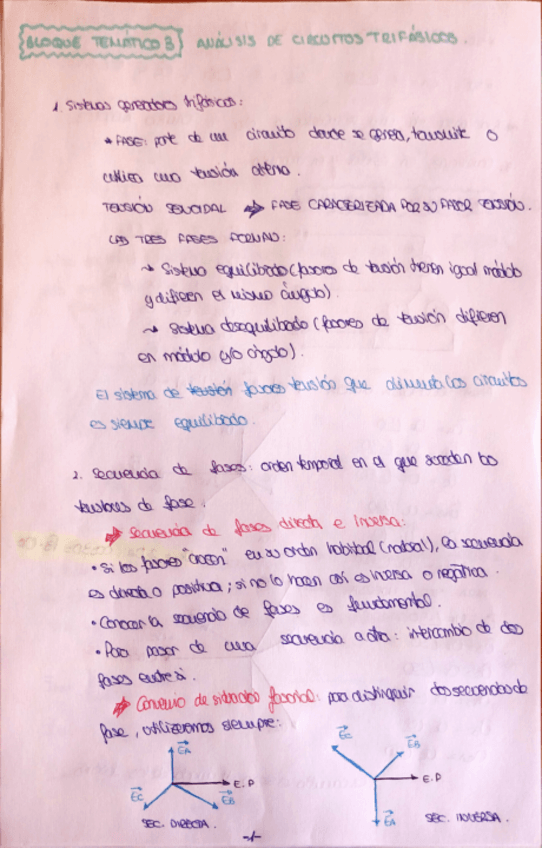 BLOQUE TEMÁTICO 3 ANÁLISIS DE CIRCUITOS TRIFÁSICOS.
1. Sistemas generadores trifásicos:
* FASE: parte de un circuito donde se genera, transmite o
utiliza una tensión alterna.
TENSIÓN SENOIDAL ⇒ FASE CARACTERIZADA POR SU FASOR TENSIÓN.
LAS TRES FASES FORMAN:
~ Sistema equilibrado (fasores de tensión tienen igual módulo
y difieren el mismo ángulo).
~ Sistema desequilibrado (fasores de tensión difieren
en módulo y/o ángulo).
El sistema de tensión fasores tensión que alimenta los circuitos
es siempre equilibrado.
2. Secuencia de fases: orden temporal en el que suceden las
tensiones de fase.
⇒ Secuencia de fases directa e inversa:
• Si los fasores "crecen" en su orden habitual (natural), la secuencia
es directa o positiva; si no lo hacen así es inversa o negativa.
• Conocer la secuencia de fases es fundamental.
• Para pasar de una secuencia a otra: intercambio de dos
fases entre sí.
⇒ Convenio de situación fasorial: para distinguir dos secuencias de
fase, utilizaremos siempre:
EA EC EB
E.P E.P
EC EB EA
SEC. DIRECTA. SEC. INVERSA.
-1-